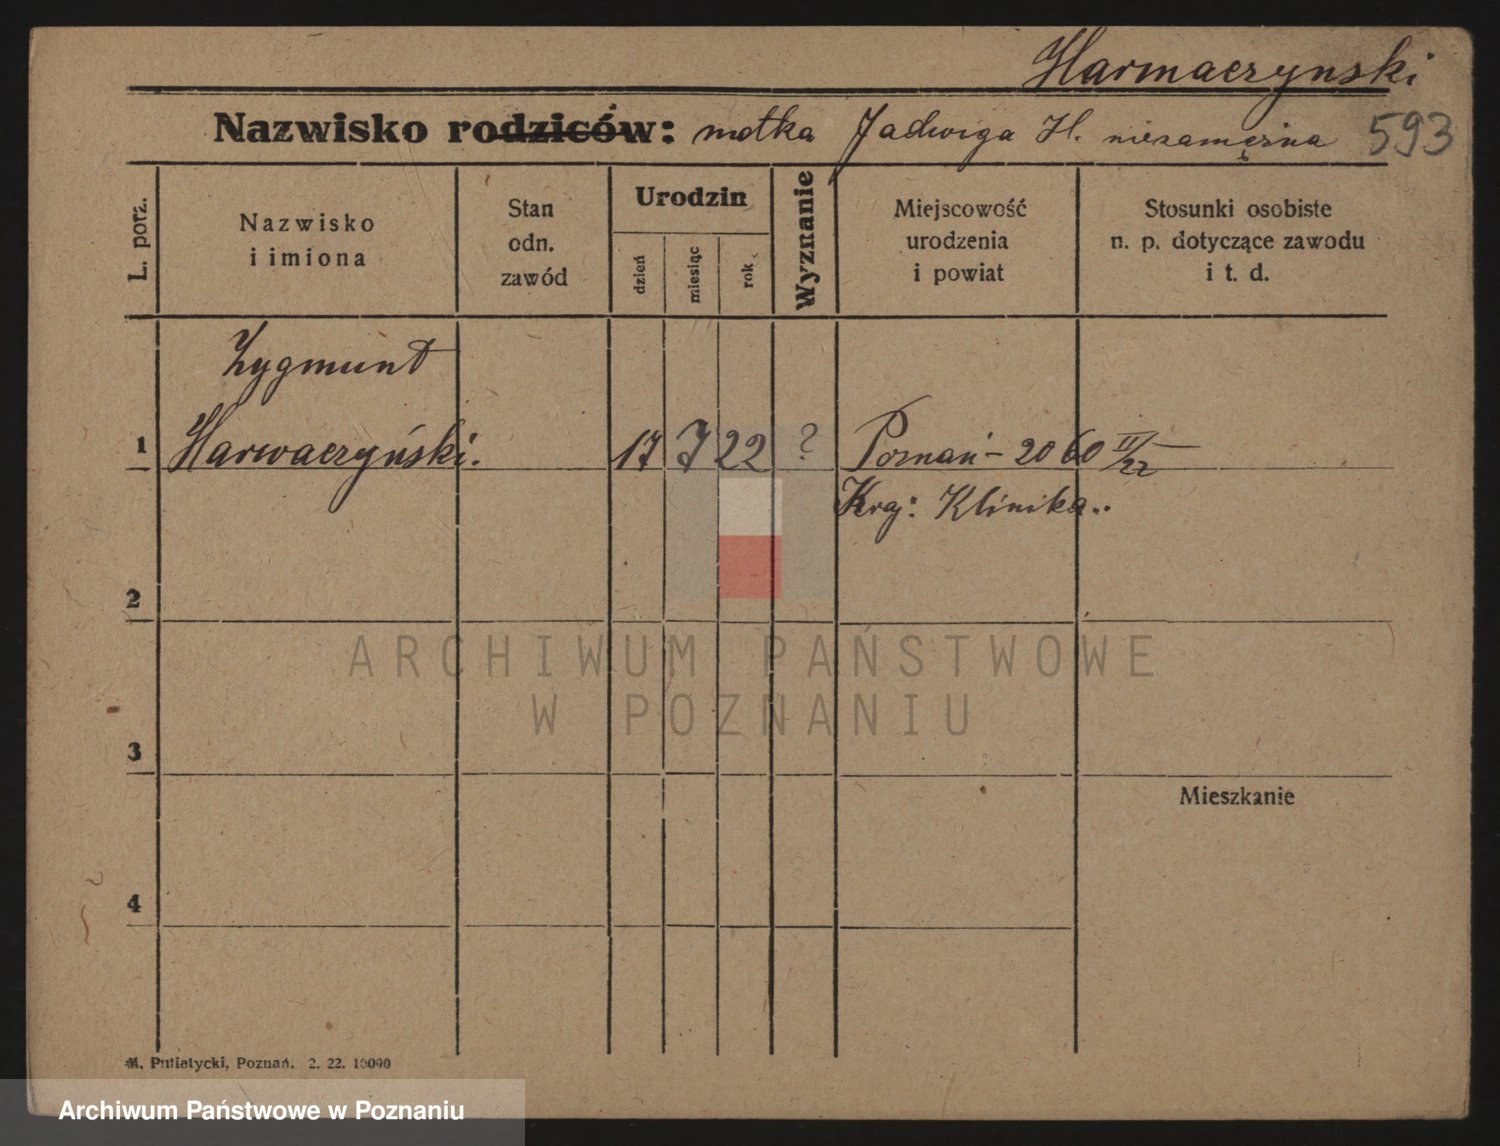 Harmaczynski
Nazwisko rodziców: matka Jadwiga H. niezamężna 593
L. porz.
Nazwisko
i imiona
Stan
odn.
zawód
Urodzin
dzień
miesiąc
rok
Wyznanie
Miejscowość
urodzenia
i powiat
Stosunki osobiste
n. p. dotyczące zawodu
i t. d.
Zygmunt
1 Harwaczyński. 17 J 22 ? Poznań – 2060 II/22
Kraj: Klinika..
2
ARCHIWUM PAŃSTWOWE
W POZNANIU
3
Mieszkanie
4
M. Putiatycki, Poznań. 2. 22. 10000
Archiwum Państwowe w Poznaniu